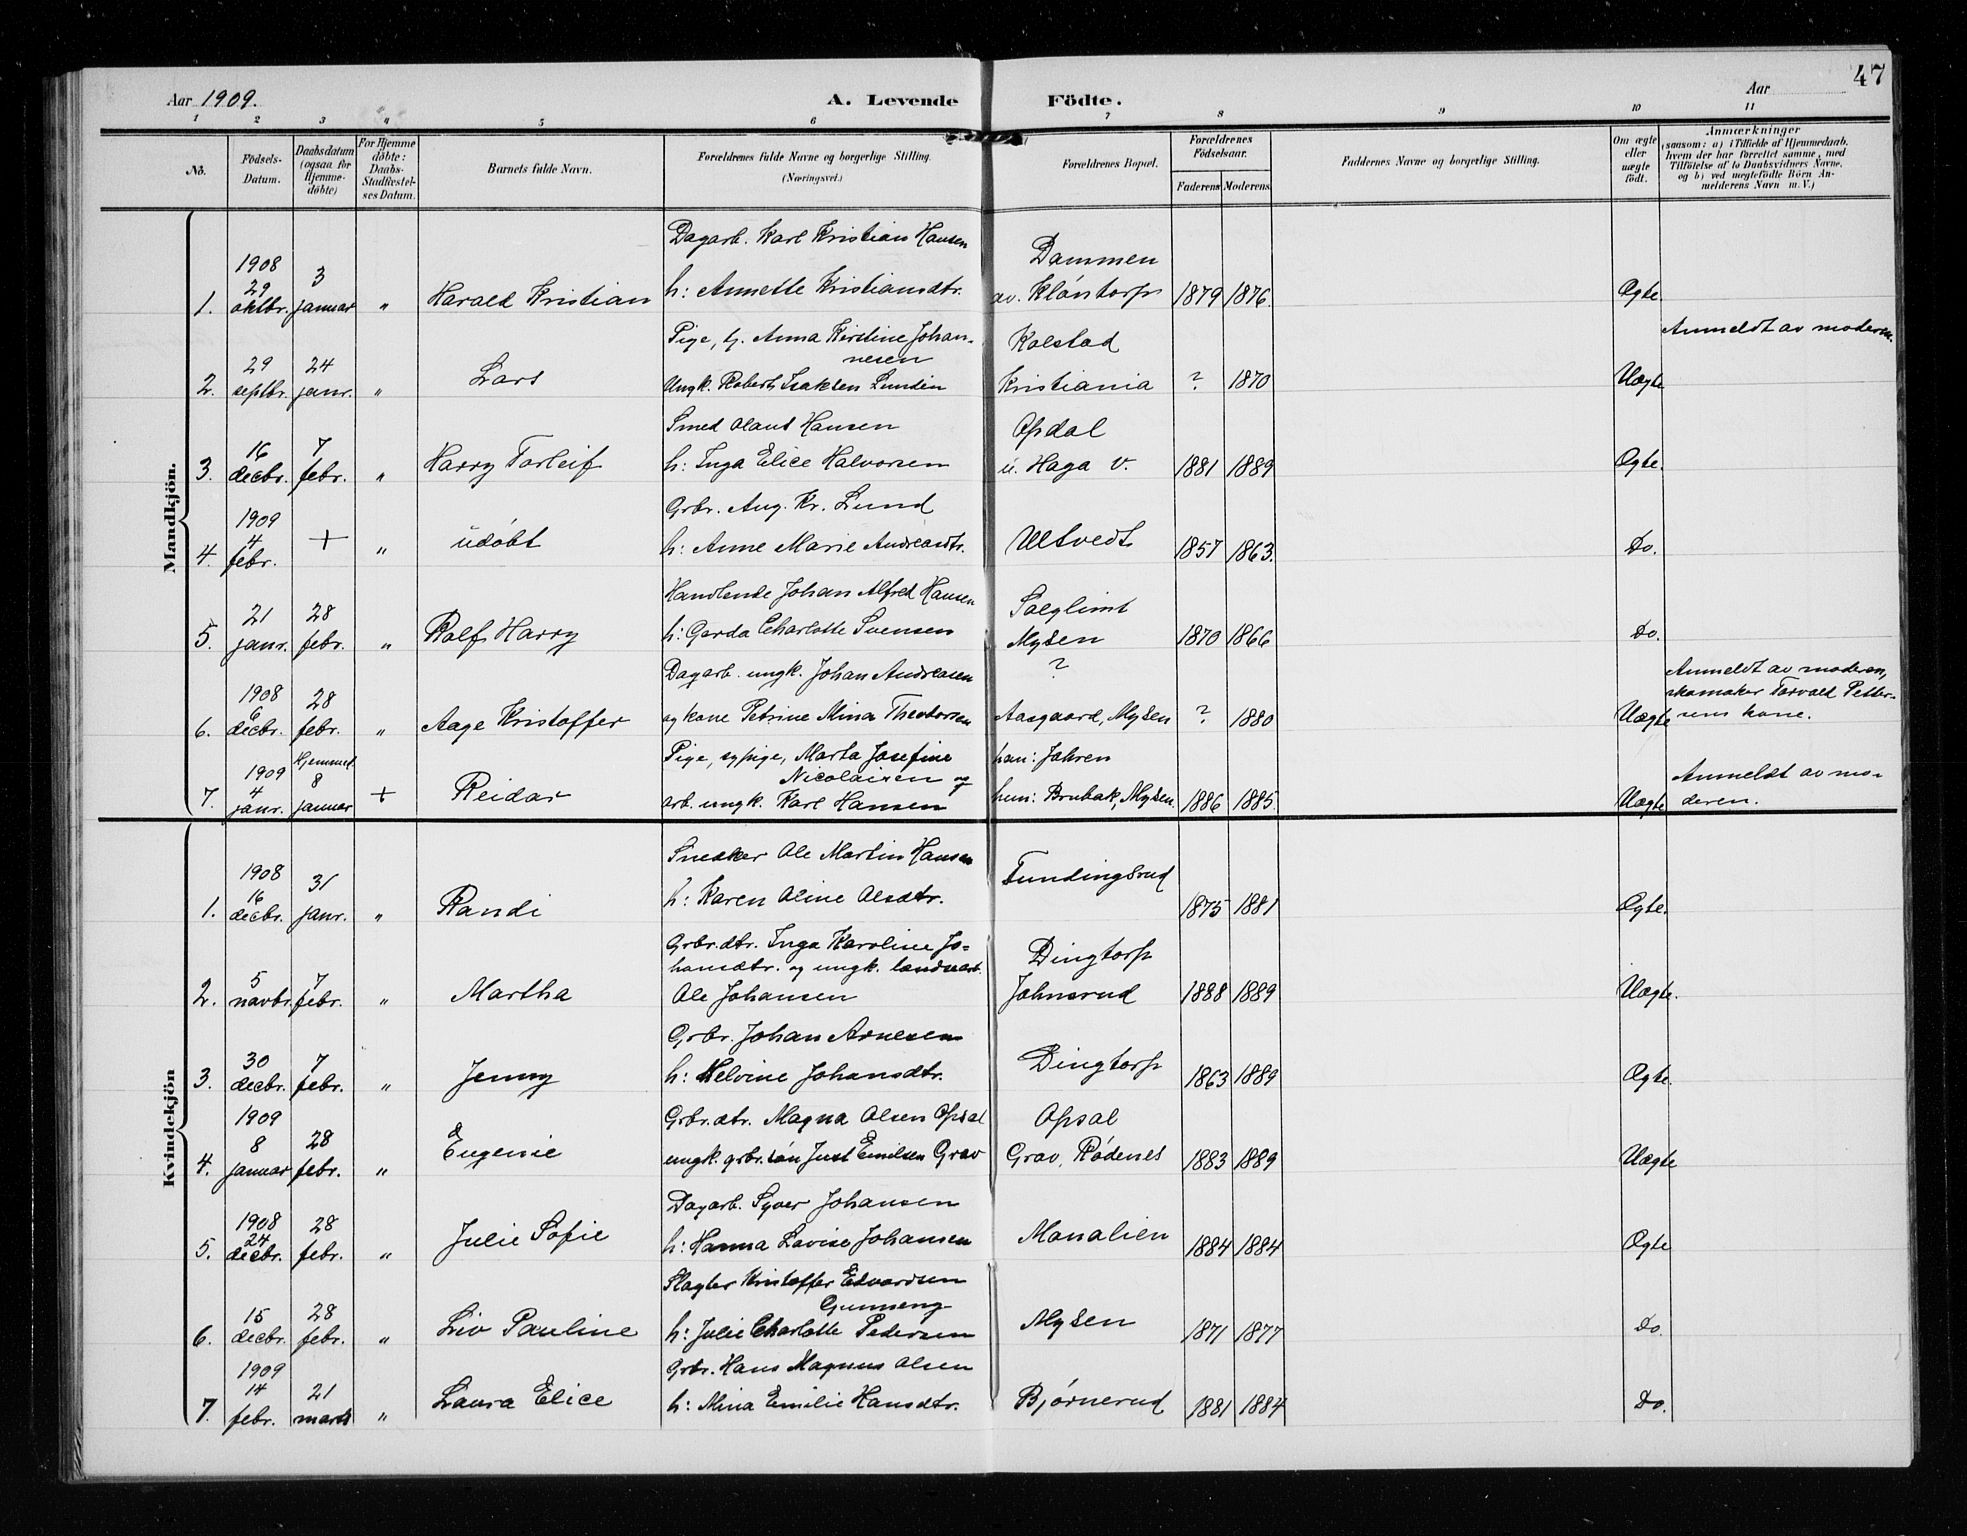 47
Aar 1909.
A. Levende Födte.
Aar
1 2 3 4 5 6 7 8 9 10 11
No.
Födsels-Datum.
Daabsdatum (ogsaa for Hjemme-döbte)
For Hjemme döbte: Daabs-Stadfæstel-ses Datum.
Barnets fulde Navn.
Forældrenes fulde Navne og borgerlige Stilling. (Næringsvei.)
Forældrenes Bopæl.
Forældrenes Födselsaar.
Faderens Moderens
Faddernes Navne og borgerlige Stilling.
Om ægte eller uægte födt.
Anmærkninger
(saasom: a) i Tilfælde af Hjemmedaab, hvem der har forrettet samme, med Tilföielse af to Daabsvidners Navne, og b) ved uægtefödte Börn An-melderens Navn m. V.)
Mandkjön.
Dagarb. Karl Kristian Hansen
1908 Dammen
1. 29 oktbr. 3 januar " Harald Kristian h: Annette Kristiansdtr. av. Klöntorp 1879 1876. Ægte.
Pige, G. Anna Kirstine Johan-nesen Kolstad Anmeldt av moderen.
2. 29 septbr. 24 janr. " Lars Ungk. Robert Isaksen Lundin Kristiania ? 1870 Uægte
Smed Olaus Hansen Opdal
3. 16 decbr. 7 febr. " Harry Torleif h: Inga Elice Halvorsen u. Haga v. 1881 1889 Ægte.
Grbr. Aug. Kr. Lund
1909
4. 4 febr. + " udøbt h: Anne Marie Andreasdtr. Ultvedt 1857 1863. Do.
Handlende Johan Alfred Hansen Solglimt
5. 21 janr. 28 febr. " Rolf Harry h: Gerda Charlotte Svensen Mysen 1870 1866 Do.
Dagarb. ungk. Johan Andreasen ? Anmeldt av moderen,
1908 skomaker Torvald Petter-
6. 6 decbr. 28 febr. " Aage Kristoffer og kone Petrine Mina Theodorsen Aasgaard, Mysen ? 1880 Uægte sens kone.
Pige, sypige, Marta Josefine Nicolaisen og han: Jahren
1909 Hjemmed. Anmeldt av mo-
7. 4 janr. 8 januar + Reidar arb. ungk. Karl Hansen hun: Brubak, Mysen. 1886 1885. Uægte deren.
Kvindekjön
Snedker Ole Martin Hansen Fundingsrud
1908
1. 16 decbr. 31 janr. " Randi h: Karen Oline Olsdtr. 1875 1881 Ægte.
Grbr.dtr. Inga Karoline Jo-hansdtr. og ungk. landvarb. Dingtorp
2. 5 novbr. 7 febr. " Martha Ole Johansen Johnsrud 1888 1889 Uægte.
Grbr. Johan Arnesen
3. 30 decbr. 7 febr. " Jenny h: Helvine Johansdtr. Dingtorp 1863 1889 Ægte.
Grbr.dtr. Magna Olsen Opsal Opsal
1909
4. 8 januar 28 febr. " Eugenie ungk. grbr.søn Just Emilsen Grav Grav, Rødenes 1883 1889 Uægte
Dagarb. Syver Johansen
1908
5. 24 decbr. 28 febr. " Julie Sofie h: Hanna Lovise Johansen Monalien 1884 1884 Ægte
Slagter Kristoffer Edvardsen Gunneng
6. 15 decbr. 28 febr. " Liv Pauline h: Julie Charlotte Pedersen Mysen 1871 1877 Do.
Grbr. Hans Magnus Olsen
1909
7. 14 febr. 21 marts " Laura Elice h: Mina Emilie Hansdtr. Bjørnerud 1881 1884 Do.